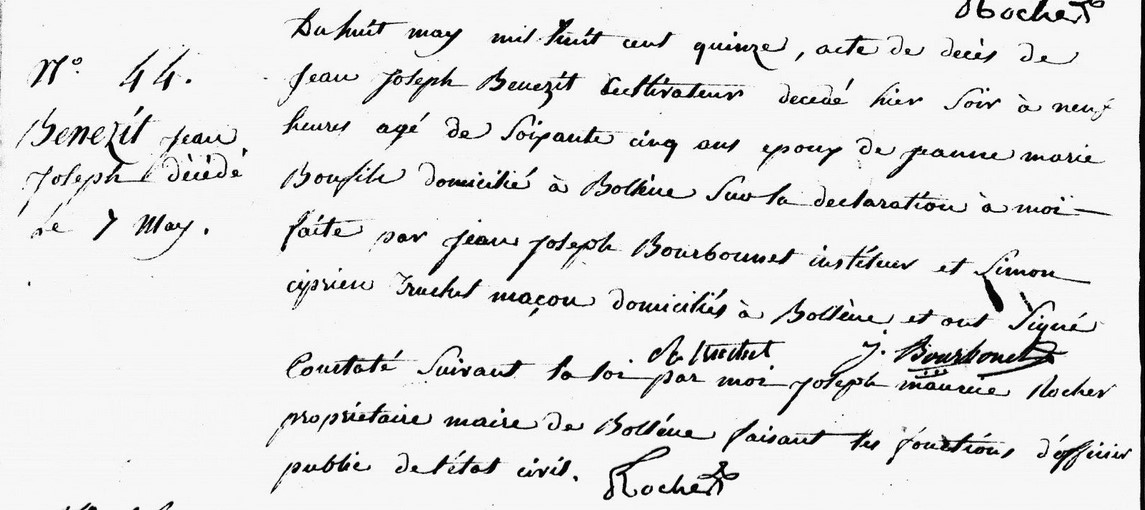 Rocher
Du huit may mil huit cent quinze, acte de decès de
N° 44.
Jean Joseph Benezit Cultivateur decedé hier Soir à neuf
Benezit Jean
heures agé de Soixante cinq ans epoux de jeanne marie
Joseph décédé
Bonfils domicilié à Bollène Sur la declaration à moi
Le 7 May.
faite par jean joseph Bourbonnet instituteur et Simon
ciprien Truchet maçon domiciliés à Bollène et ont Signé
Truchet J. Bourbonnet
Constaté Suivant la loi par moi joseph maurice Rocher
propriétaire maire de Bollène faisant les fonctions d'officier
public de l'état civil. Rocher